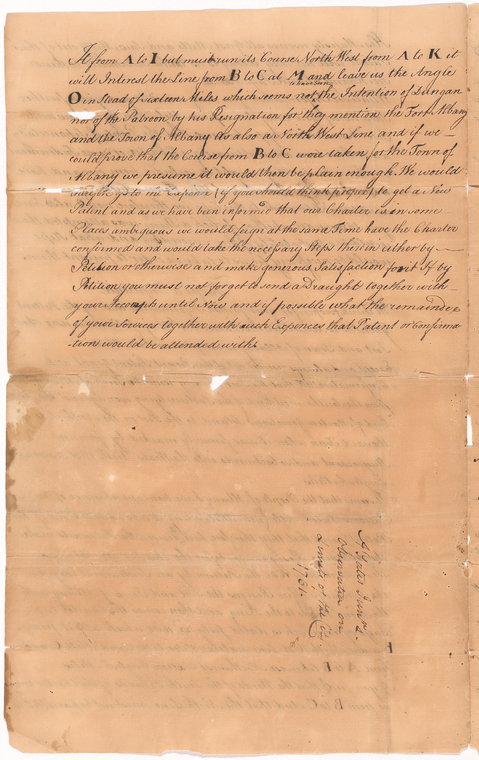 It from A to I but must run its Course North West from A to K it
will Interest the Line from B to C at M and leave us the Angle
O instead of sixteen Miles which seems not the Intention of Dungan
nor of the Patroon by his Resignation for they mention the Fort Albany
and the Town of Albany as also a North West Line and if we
could prove that the Course from B to C were taken for the Town of
Albany we presume it would then be plain enough. We would
to no Expence (if you should think proper) to get a New
Patent and as we have been informed that our Charter is in some
Places ambiguous we would feign at the same Time have the Charter
confirmed and would take the necessary Steps therein either by
Petition or otherwise and make generous Satisfaction for it If by
Petition you must not forget to send a Draught together with
your Accompts until Now and if possible what the remainder
of your Services together with such Expences that Patent or Confirma
tion would be attended with.
A Yates Junrs.
Observation on
Limits of the City.
1761.